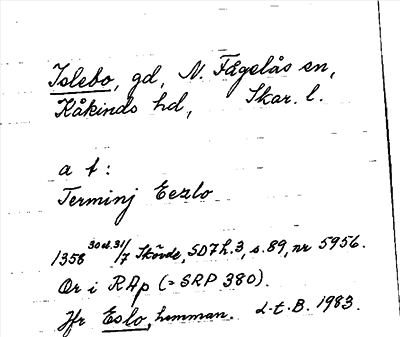 Islebo, gd, N. Fågelås sn,
Kåkinds hd, Skar. l.
a t:
Terminj Eezlo
1358 30 el. 31/7 Skövde, SD 7 h.3, s.89, nr 5956.
Or i RAp (= SRP 380).
Jfr Eslo, hemman. L-t-B. 1983.